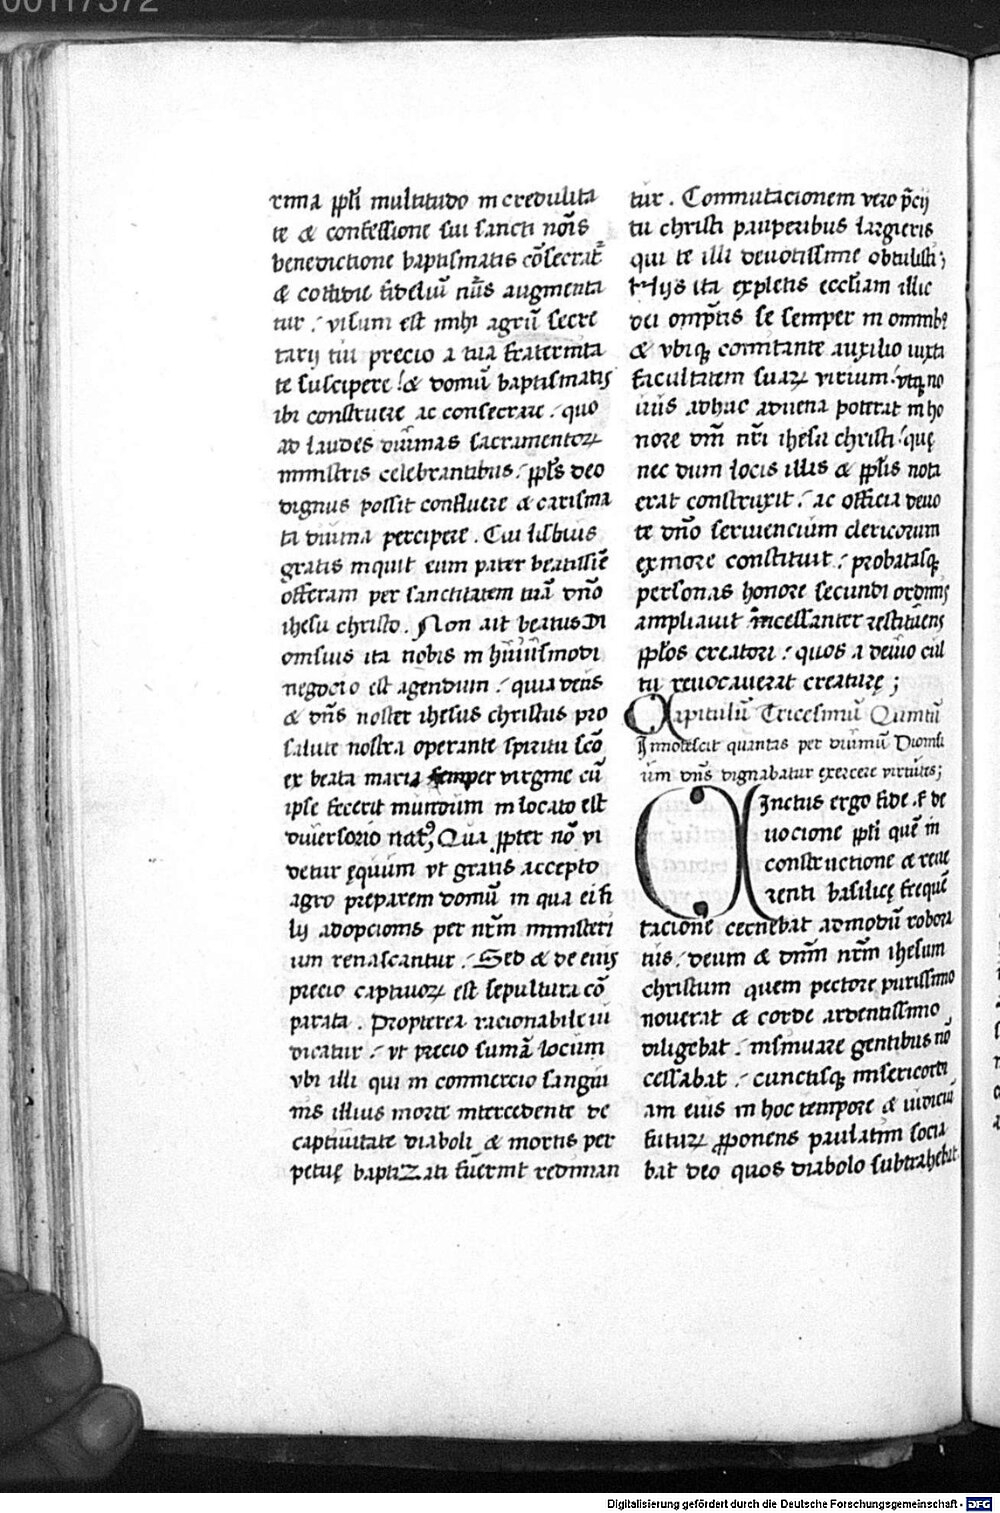 00117372
rima ppli multitudo in credulita
te & confessione sui sancti nōis
benedictione baptismatis cōsecrat̄
& cottidie fideliū nūs augmenta
tur : visum est mihi agrū secre
tarij tui precio a tua fraternita
te suscipere : & domū baptismatis
ibi construere ac consecrare : quo
ad laudes diuinas sacramentoꝝ
ministris celebrantibus : ppls deo
dignus possit confluere & carisma
ta diuina percipere . Cui lisbius
gratis inquit eum pater beatissīe
offeram per sanctitatem tuā dn̄o
ihesu christo . Non ait beatus Di
onisius ita nobis in huiusmodi
negocio est agendum : quia deus
& dn̄s noster ihesus christus pro
salute nostra operante spiritu scō
ex beata maria semper virgine cū
ipse fecerit mundum in locato est
diuersorio natꝰ; Qua ꝓpter nō vi
detur ęquum vt gratis accepto
agro preparem domū in qua ei fi
lij adopcionis per nr̄m ministeri
um renascantur : Sed & de eius
precio captiuoꝝ est sepultura cō
parata . Propterea racionabile iu
dicatur : vt precio sumā locum
vbi illi qui in commercio sangui
nis illius morte intercedente de
captiuitate diaboli & mortis per
petuę baptizati fuerint rediman
tur . Commutacionem vero p̄cij
tu christi pauperibus largieris
qui te illi deuotissime obtulisti;
Hijs ita expletis eccl̄iam illic
dei om̄ptis se semper in omnibꝰ
& vbiqꝫ comitante auxilio iuxta
facultatem suaꝝ virium : vtqꝫ no
uus adhuc aduena poterat in ho
nore dn̄i nr̄i ihesu christi : quę
nec dum locis illis & pplis nota
erat construxit : ac officia deuo
te dn̄o seruiencium clericorum
ex more constituit : probatasqꝫ
personas honore secundi ordinis
ampliauit incessanter restituens
pplos creatori : quos a deuio cul
tu reuocauerat creaturę ;
Capitulū Tricesimū Quintū
Innotescit quantas per diuinū Dionisi
um dn̄s dignabatur exercere virtutes;
Cinctus ergo fide & de
uocione ppli quē in
constructione & reue
renti basilicę frequē
tacione cernebat admodū robora
tus : deum & dnm̄ nr̄m ihesum
christum quem pectore purissimo
nouerat & corde ardentissimo
diligebat : insinuare gentibus nō
cessabat : cunctisqꝫ misericordi
am eius in hoc tempore & iudiciū
futuꝝ ꝓponens paulatim socia
bat deo quos diabolo subtrahebat
Digitalisierung gefördert durch die Deutsche Forschungsgemeinschaft - DFG